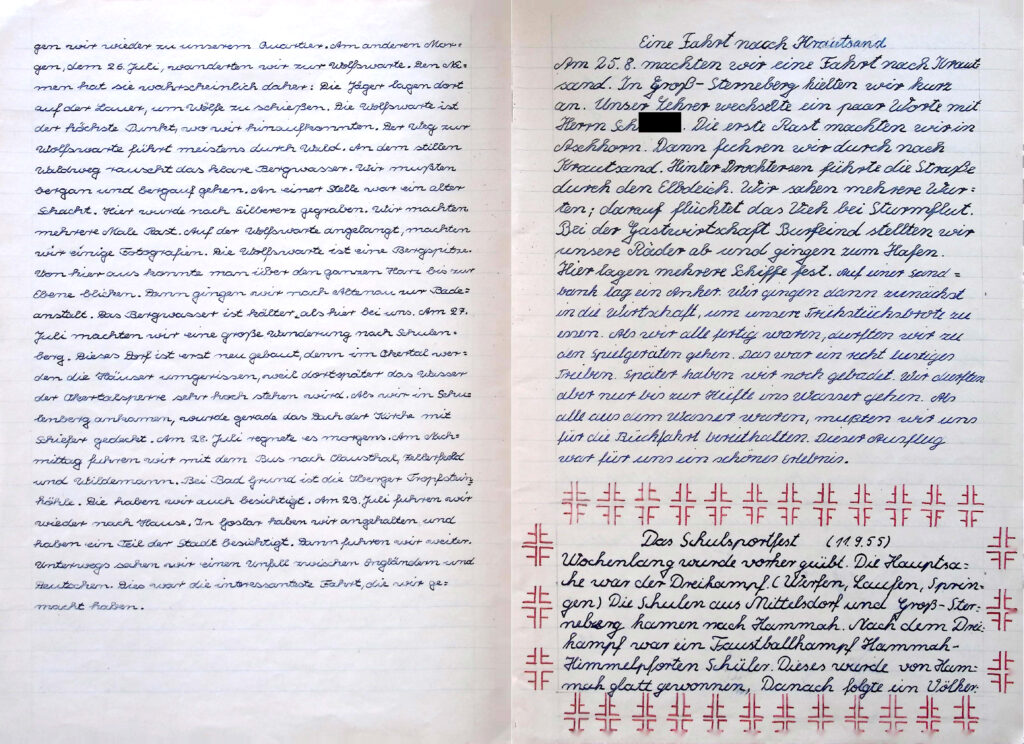 gen wir wieder zu unserem Quartier. Am anderen Mor=
gen, dem 26. Juli, wanderten wir zur Wolfswarte. Den Na=
men hat sie wahrscheinlich daher: Die Jäger lagen dort
auf der Lauer, um Wölfe zu schießen. Die Wolfswarte ist
der höchste Punkt, wo wir hinaufkonnten. Der Weg zur
Wolfswarte führt meistens durch Wald. An dem stillen
Waldweg rauscht das klare Bergwasser. Wir mußten
bergan und bergauf gehen. An einer Stelle war ein alter
Schacht. Hier wurde nach Silbererz gegraben. Wir machten
mehrere Male Rast. Auf der Wolfswarte angelangt, machten
wir einige Fotografien. Die Wolfswarte ist eine Bergspitze.
Von hier aus konnte man über den ganzen Harz bis zur
Ebene blicken. Dann gingen wir nach Altenau zur Bade=
anstalt. Das Bergwasser ist kälter als hier bei uns. Am 27.
Juli machten wir eine große Wanderung nach Schulen=
berg. Dieses Dorf ist erst neu gebaut, denn im Okertal wer=
den die Häuser umgerissen, weil dort später das Wasser
der Okertalsperre sehr hoch stehen wird. Als wir in Schu=
lenberg ankamen, wurde gerade das Dach der Kirche mit
Schiefer gedeckt. Am 28. Juli regnete es morgens. Am Nach=
mittag fuhren wir mit dem Bus nach Clausthal, Zellerfeld
und Wildemann. Bei Bad Grund ist die Iberger Tropfstein
höhle. Die haben wir auch besichtigt. Am 29. Juli fuhren wir
wieder nach Hause. In Goslar haben wir angehalten und
haben ein Teil der Stadt besichtigt. Dann fuhren wir weiter.
Unterwegs sahen wir einen Unfall zwischen Engländern und
Deutschen. Dies war die interessanteste Fahrt, die wir ge=
macht haben.
Eine Fahrt nach Krautsand
Am 25.8. machten wir eine Fahrt nach Kraut
sand. In Groß-Sterneberg hielten wir kurz
an. Unser Lehrer wechselte ein paar Worte mit
Herrn Sch . Die erste Rast machten wir in
Aschhorn. Dann fuhren wir durch nach
Krautsand. Hinter Drochtersen führte die Straße
durch den Elbdeich. Wir sahen mehrere Wur=
ten; darauf flüchtet das Vieh bei Sturmflut.
Bei der Gastwirtschaft Burfeind stellten wir
unsere Räder ab und gingen zum Hafen.
Hier lagen mehrere Schiffe fest. Auf einer Sand=
bank lag ein Anker. Wir gingen dann zunächst
in die Wirtschaft, um unsere Frühstücksbrote zu
essen. Als wir alle fertig waren, durften wir zu
den Spielgeräten gehen. Das war ein recht lustiges
Treiben. Später haben wir noch gebadet. Wir durften
aber nur bis zur Hüfte ins Wasser gehen. Als
alle aus dem Wasser waren, mußten wir uns
für die Rückfahrt bereithalten. Dieser Ausflug
war für uns ein schönes Erlebnis.
Das Schulsportfest (11.9.55)
Wochenlang wurde vorher geübt. Die Hauptsa=
che war der Dreikampf (Werfen, Laufen, Sprin=
gen) Die Schulen aus Mittelsdorf und Groß-Ster=
neberg kamen nach Hammah. Nach dem Drei=
kampf war ein Faustballkampf Hammah-
Himmelpforten Schüler. Dieses wurde von Ham=
mah glatt gewonnen, Danach folgte ein Völker=